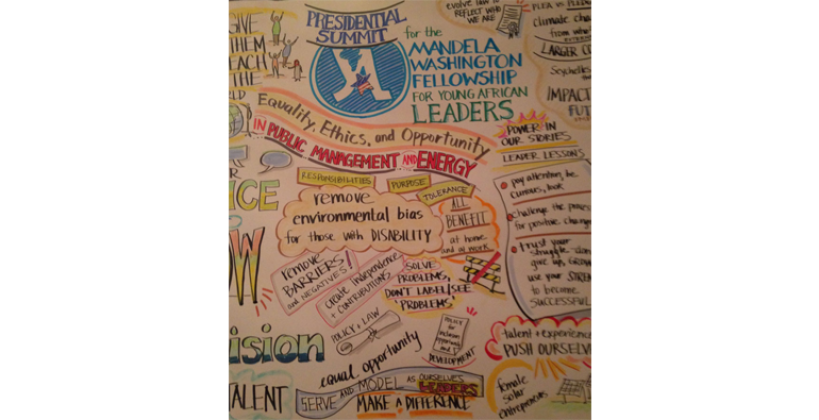 GIVE
THEM
EACH
THE
PRESIDENTIAL
SUMMIT
for the
MANDELA
WASHINGTON
FELLOWSHIP
FOR YOUNG AFRICAN
LEADERS
REFLECT WHO
WE ARE
climate cha
from
LARGER CO
Seychelles
IMPACT
FUT
Equality, Ethics, and Opportunity
IN PUBLIC MANAGEMENT AND ENERGY
POWER IN
OUR STORIES
LEADER LESSONS
RESPONSIBILITIES
PURPOSE
TOLERANCE
remove
environmental bias
for those with DISABILITY
ALL
BENEFIT
at home
and at work
pay attention, be
curious, look
challenge the process
for positive change
trust your
struggle, don't
give up, GROW
use your STREN
to become
SUCCESSFUL
remove
BARRIERS!
and NEGATIVES!
create independence
+ CONTRIBUTIONS
SOLVE
PROBLEMS,
DON'T LABEL/SEE
"PROBLEMS"
POLICY + LAW
POLICY
for
inclusion
opportunity
and
DEVELOPMENT
equal opportunity
ision
ALENT
SERVE AND MODEL AS OURSELVES
LEADERS
MAKE A DIFFERENCE
talent + experience
PUSH OURSELV
female
solar
entrepreneurs